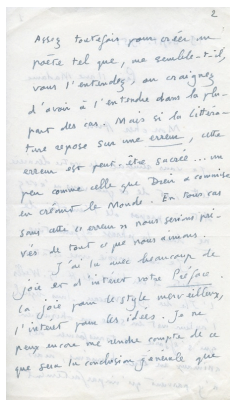 2
Assez toutefois pour créer un
poète tel que, me semble-t-il,
vous l'entendez, ou craignez
d'avoir à l'entendre dans la plu-
part des cas. Mais si la littéra-
ture repose sur une erreur, cette
erreur est peut-être sacrée... un
peu comme celle que Dieu a commise
en créant le Monde. En tous cas
sans cette « erreur » nous serions pri-
vés de tout ce que nous aimons.
J'ai lu avec beaucoup de
joie et d'intérêt votre Préface.
La joie pour le style merveilleux,
l'intérêt pour les idées. Je ne
peux encore me rendre compte de ce
que sera la conclusion générale que